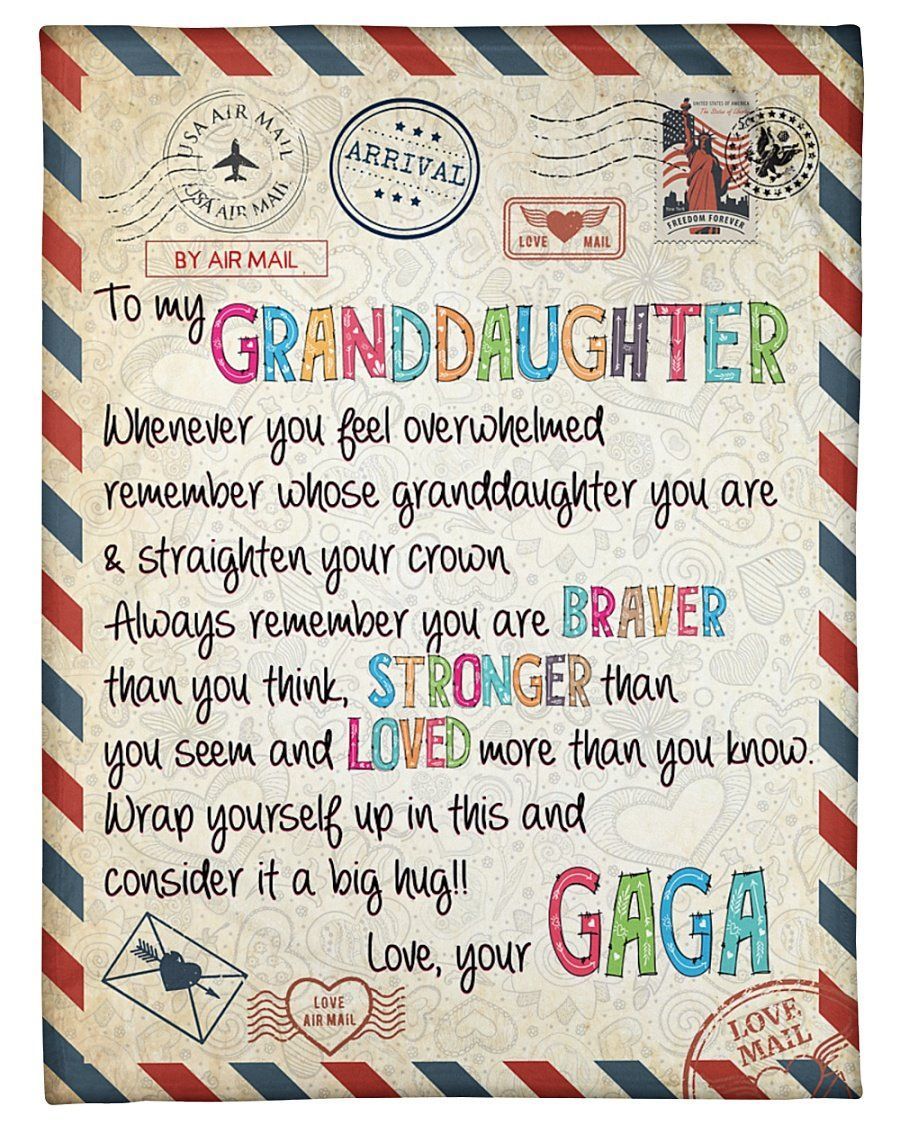 USA AIR MAIL
USA AIR MAIL
ARRIVAL
UNITED STATES OF AMERICA
The Statue of Liberty
New York
FREEDOM FOREVER
LOVE MAIL
BY AIR MAIL
To my GRANDDAUGHTER
Whenever you feel overwhelmed
remember whose granddaughter you are
& straighten your crown
Always remember you are BRAVER
than you think, STRONGER than
you seem and LOVED more than you know.
Wrap yourself up in this and
consider it a big hug!!
Love, your GAGA
LOVE
AIR MAIL
LOVE
MAIL